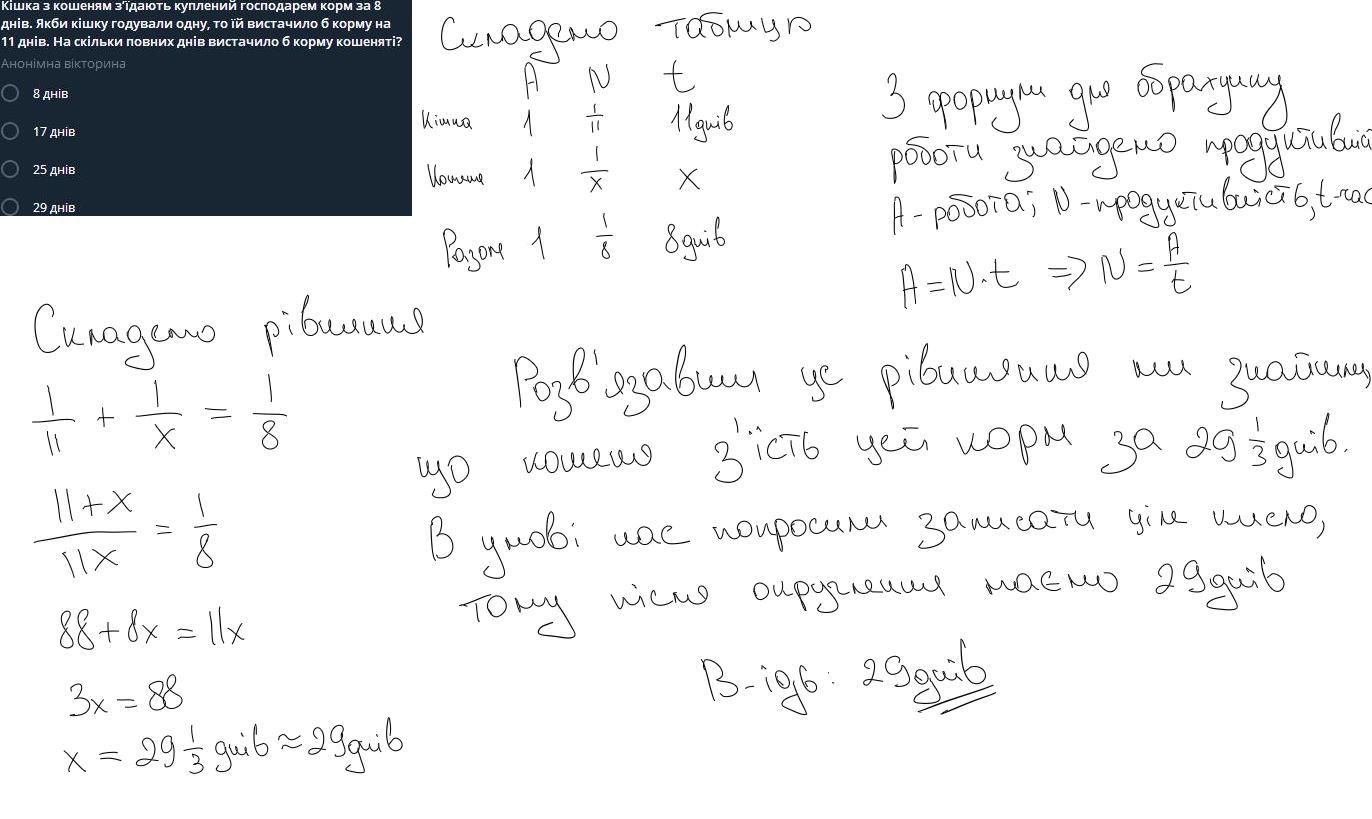 Кішка з кошеням з'їдають куплений господарем корм за 8
днів. Якби кішку годували одну, то їй вистачило б корму на
11 днів. На скільки повних днів вистачило б корму кошеняті?
Анонімна вікторина
8 днів
17 днів
25 днів
29 днів
Складемо таблицю
A N t
Кішка 1 1/11 11днів
Кошеня 1 1/x x
Разом 1 1/8 8днів
З формули для обрахунку
роботи знайдемо продуктивність
A - робота; N - продуктивність, t - час
A = N · t => N = A/t
Складемо рівняння
1/11 + 1/x = 1/8
11+x/11x = 1/8
88 + 8x = 11x
3x = 88
x = 29 1/3 днів ≈ 29днів
Розв'язавши це рівняння ми знайшли,
що кошеня з'їсть цей корм за 29 1/3 днів.
В умові нас попросили записати ціле число,
тому після округлення маємо 29днів
В-ідь: 29днів